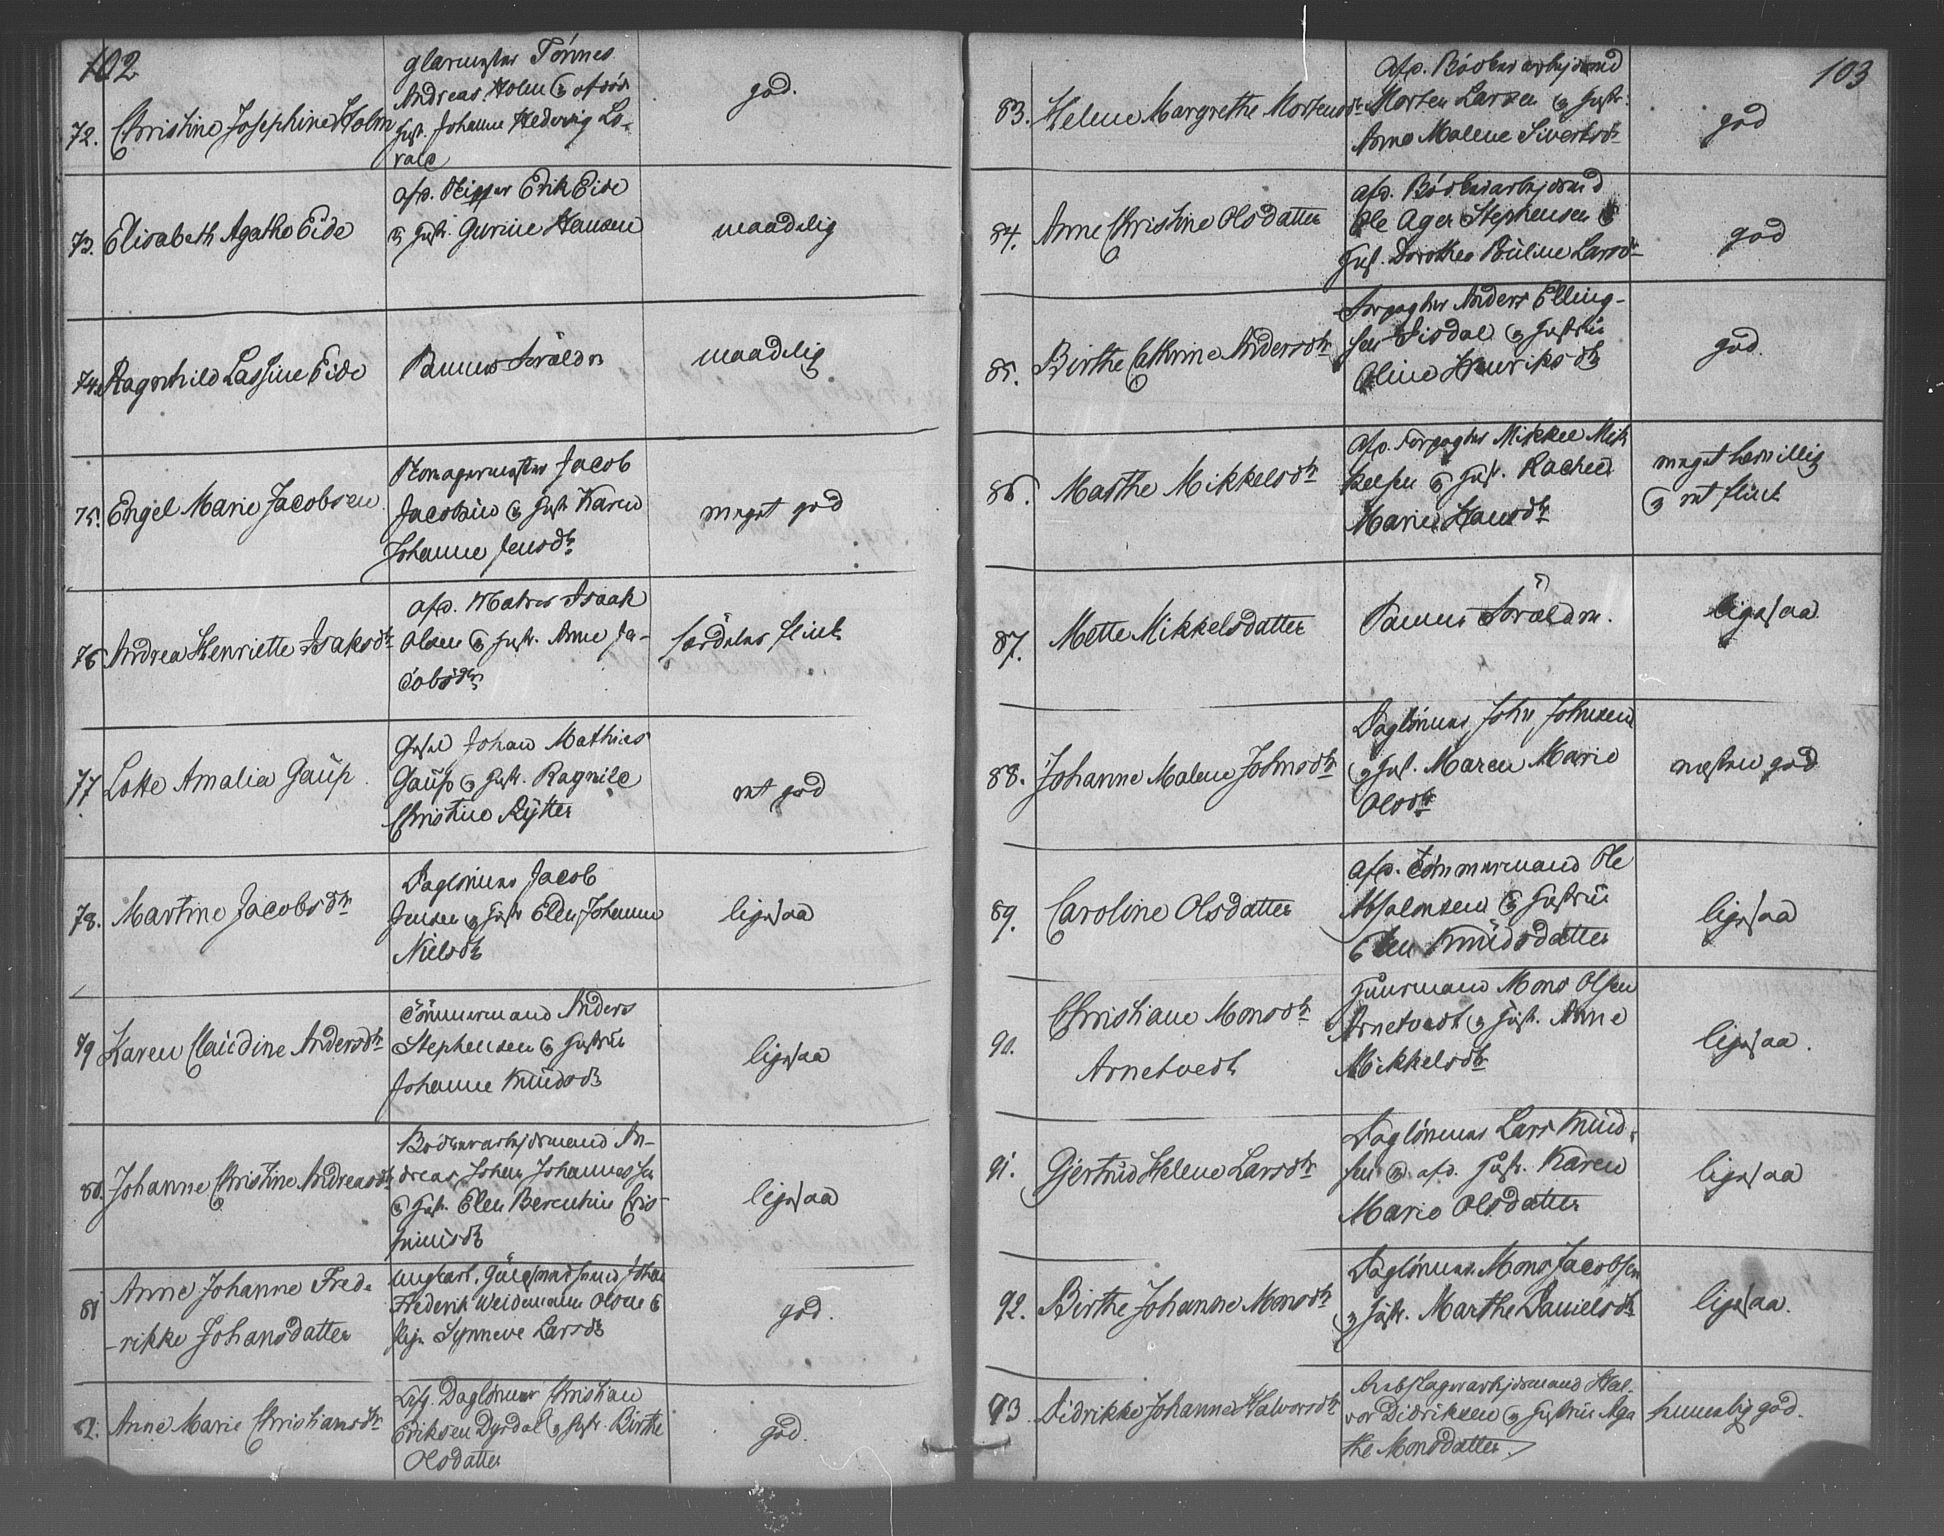 102
72. Christine Josephine Holm
glarmester Tönnes
Andreas Holm & afdøde
Hust. Johanne Hedevig Lo-
god.
73. Elisabeth Agathe Eide
afd. Skipper Erik Eide
& Hust. Gurine Hansen
maadelig
74. Ragnhild Lassine Eide
Samme Forældre
maadelig
75. Engel Marie Jacobsen
Skomagermester Jacob
Jacobsen & Hust. Karen
Johanne Jensdtr
meget god
76 Andrea Henriette Isaksdtr
afd. Matros Isaak
Olsen & Hustr. Anne Ja-
cobsdtr.
særdeles flink
77 Lotte Amalia Gaup.
Johan Mathias
Gaup & Hustr. Ragnile
Christine Rytter
ret god
78. Martine Jacobsdtr
Daglønner Jacob
Jensen & Hustr Elen Johanne
Nielsdtr
ligesaa
79 Karen Claudine Andersdtr
Tömmermand Anders
Stephensen & Hustrue
Johanne Knudsdtr
ligesaa
80. Johanne Christine Andreasdtr
Bødkerarbejdsmand An-
dreas Johan Johannessen
& Hustr. Elen Berentine
ligesaa
81 Anne Johanne Frede
-rikke Johansdatter
Ungkarl, Johan
Frederik Weidemann Olsen &
Pige Synneve Larsdtr
god.
82. Anne Marie Christiansdtr
Daglönner Christian
Eriksen Dyrdal & Hustr Birthe
Olsdatter
god.
103
83. Helene Margrethe Mortensdtr
Afd. Bödkerarbejdsmd
Morten Larsen & Hustr.
Anne Malene Sivertsdr
god
84. Anne Christine Olsdatter
afd. Bödkerarbejdsmd
Ole Ager Stephensen &
Hust. Dorothea Pauline Larsdr
god
85. Birthe Cathrine Andersdtr
Forpagter Anders Elling-
sen Sisdal & Hustrue
Oline Henriksdtr
god.
86. Marthe Mikkelsdtr
Afd. Forpagter Mikkel Mik
kelsen & Hust. Rachel
Marie Hansdtr
meget lærvillig
& ret flink
87. Mette Mikkelsdatter
Samme Forældre.
ligesaa
88. Johanne Malene Johnsdtr
Daglönner John Johnsen
& Hust. Maren Marie
Olsdtr
næsten god
89. Caroline Olsdatter
afd. Tömmermand Ole
Absalonsen & Hustrue
Elen Knudsdatter
ligesaa
90. Christiane Monsdtr
Arnetvedt
Huusmand Mons Olsen
Arnetvedt & Hust. Anne
Mikkelsdtr
ligesaa.
91. Gjertrud Helene Larsdtr
Daglönner Lars Knud-
sen & afd. Hustr. Karen
Marie Olsdatter
ligesaa
92. Birthe Johanne Monsdtr
Daglönner Mons Jacobsen
& Hustr. Marthe Danielsdtr
ligesaa.
93 Didrikke Johanne Halvorsdtr
Rebslagerarbejdsmand Hal-
vor Didriksen & Hustrue Aga
the Monsdatter
temmelig god.